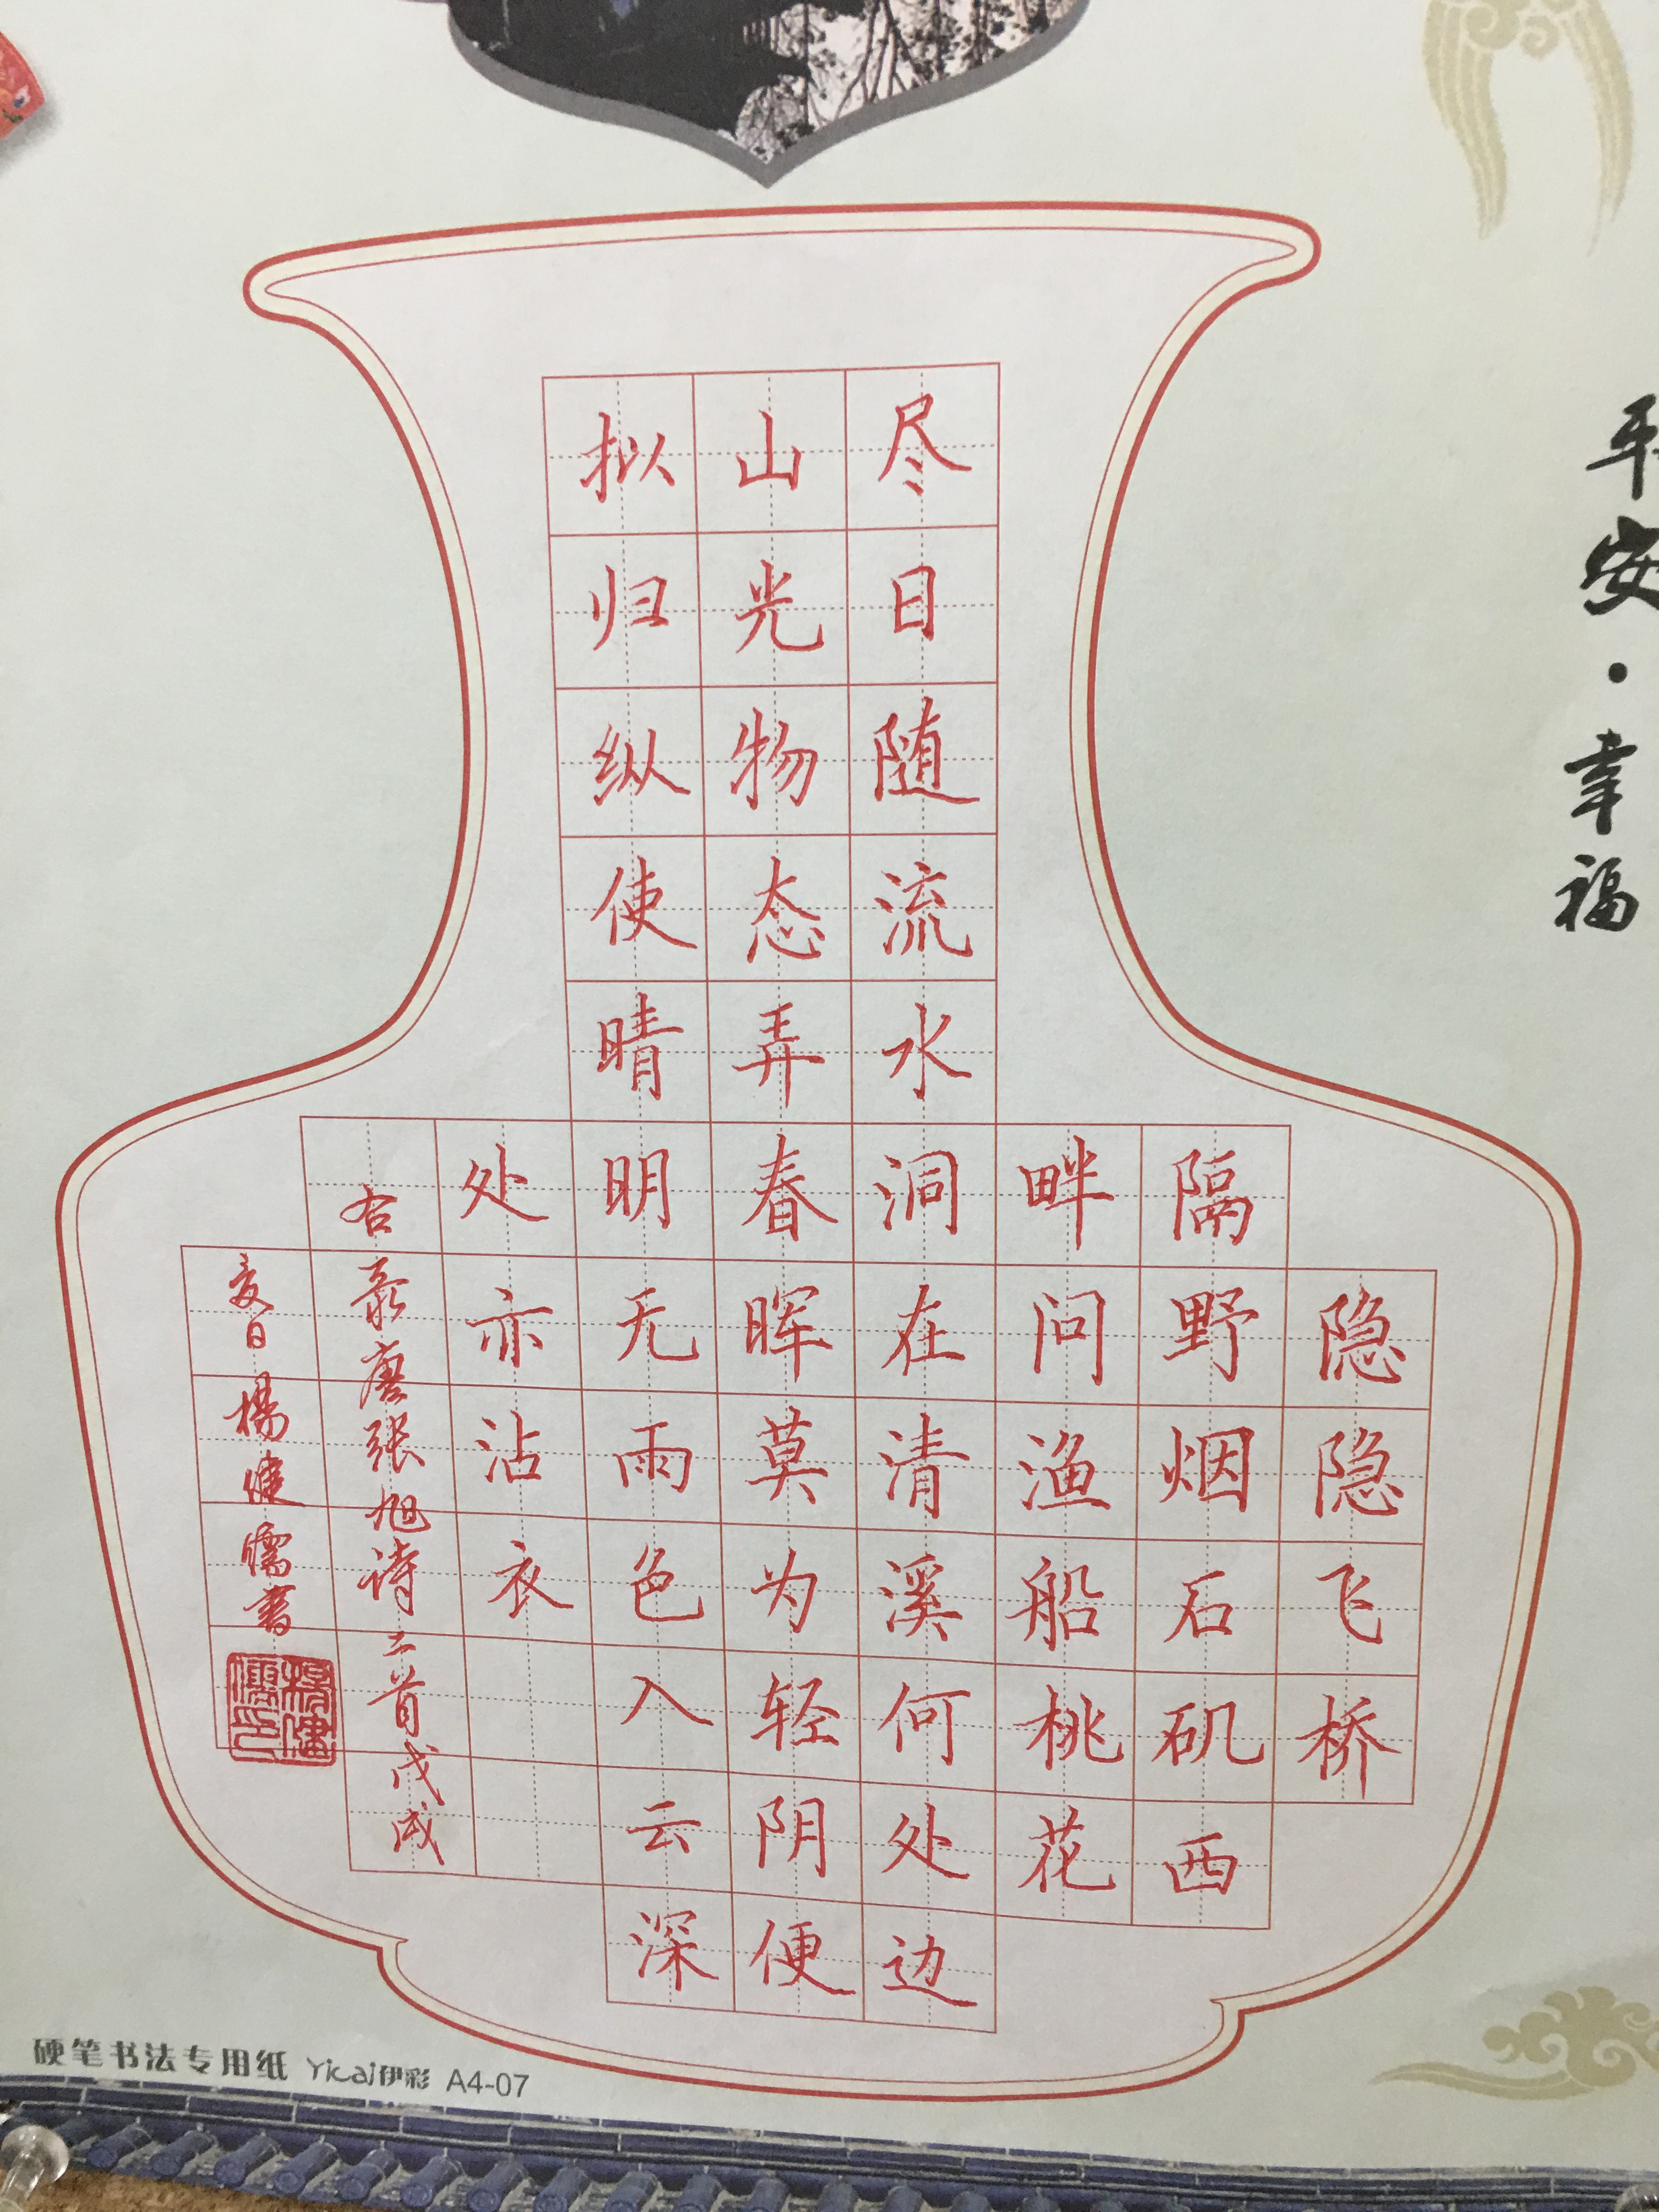 平安·幸福
隐隐飞桥
隔野烟石矶西
畔问渔船桃花
尽日随流水洞在清溪何处边
山光物态弄春晖莫为轻阴便
拟归纵使晴明无雨色入云深
处亦沾衣
右录唐张旭诗二首戊戌
夏日楊健儒書
楊健儒印
硬笔书法专用纸 Yicai伊彩 A4-07